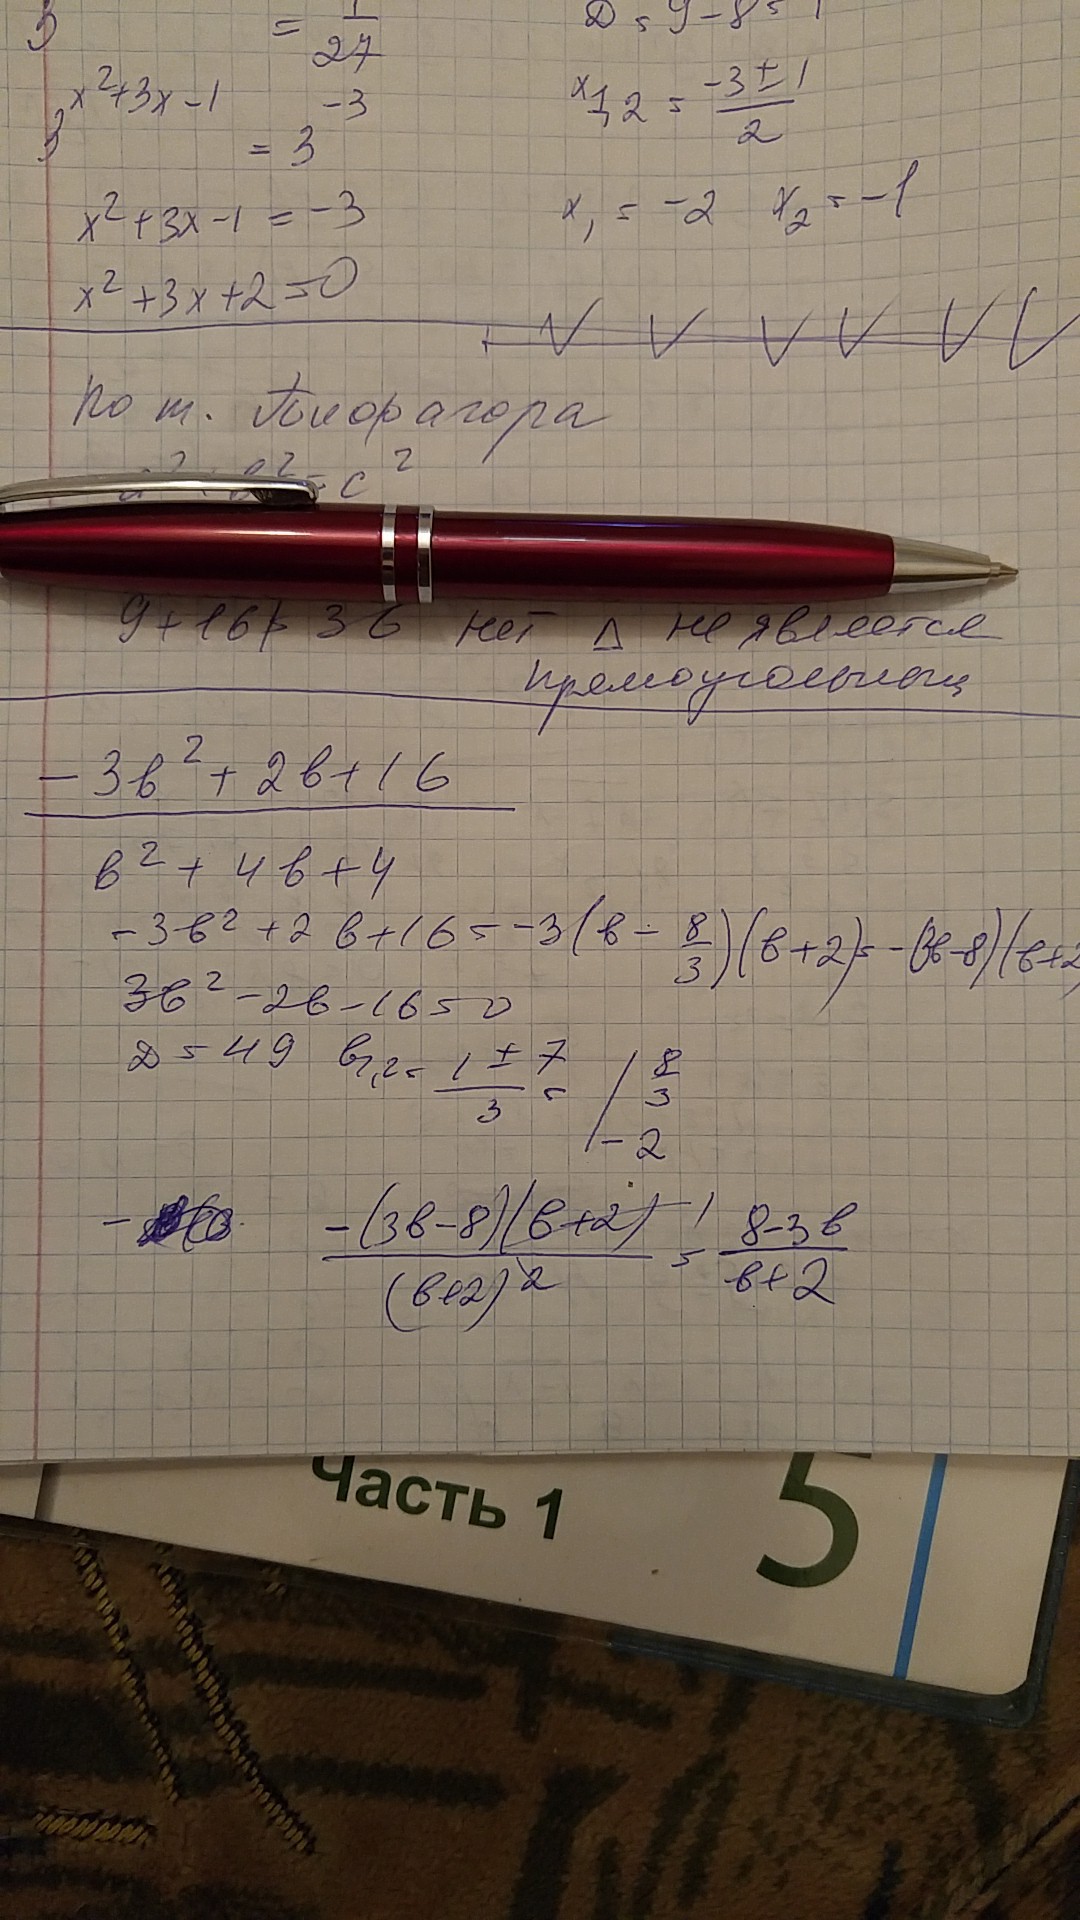 3 = 1/27
D = 9 - 8 = 1
3^(x²+3x-1) = 3^(-3)
x₁,₂ = (-3 ± 1)/2
x²+3x-1 = -3
x₁ = -2 x₂ = -1
x²+3x+2=0
По т. Пифагора
a² + b² = c²
9+16≠36 нет Δ не является
прямоугольным
-3b²+2b+16
b²+4b+4
-3b²+2b+16=-3(b-8/3)(b+2)=-(3b-8)(b+2
3b²-2b-16=0
D=49 b₁,₂=(1±7)/3= / 8/3
-2
- (-(3b-8)(b+2))/(b+2)² = (8-3b)/(b+2)
Часть 1 5